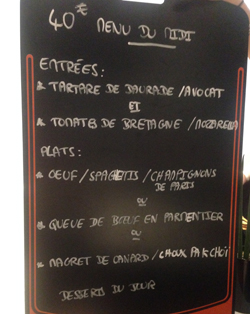 40€ MENU DU MIDI
ENTRÉES:
* TARTARE DE DAURADE / AVOCAT
ET
* TOMATES DE BRETAGNE / MOZARELLA
PLATS:
* OEUF / SPAGETTIS / CHAMPIGNONS
DE PARIS
OU
* QUEUE DE BŒUF EN PARMENTIER
OU
* MAGRET DE CANARD / CHOUX PAK CHOÏ
DESSERTS DU JOUR